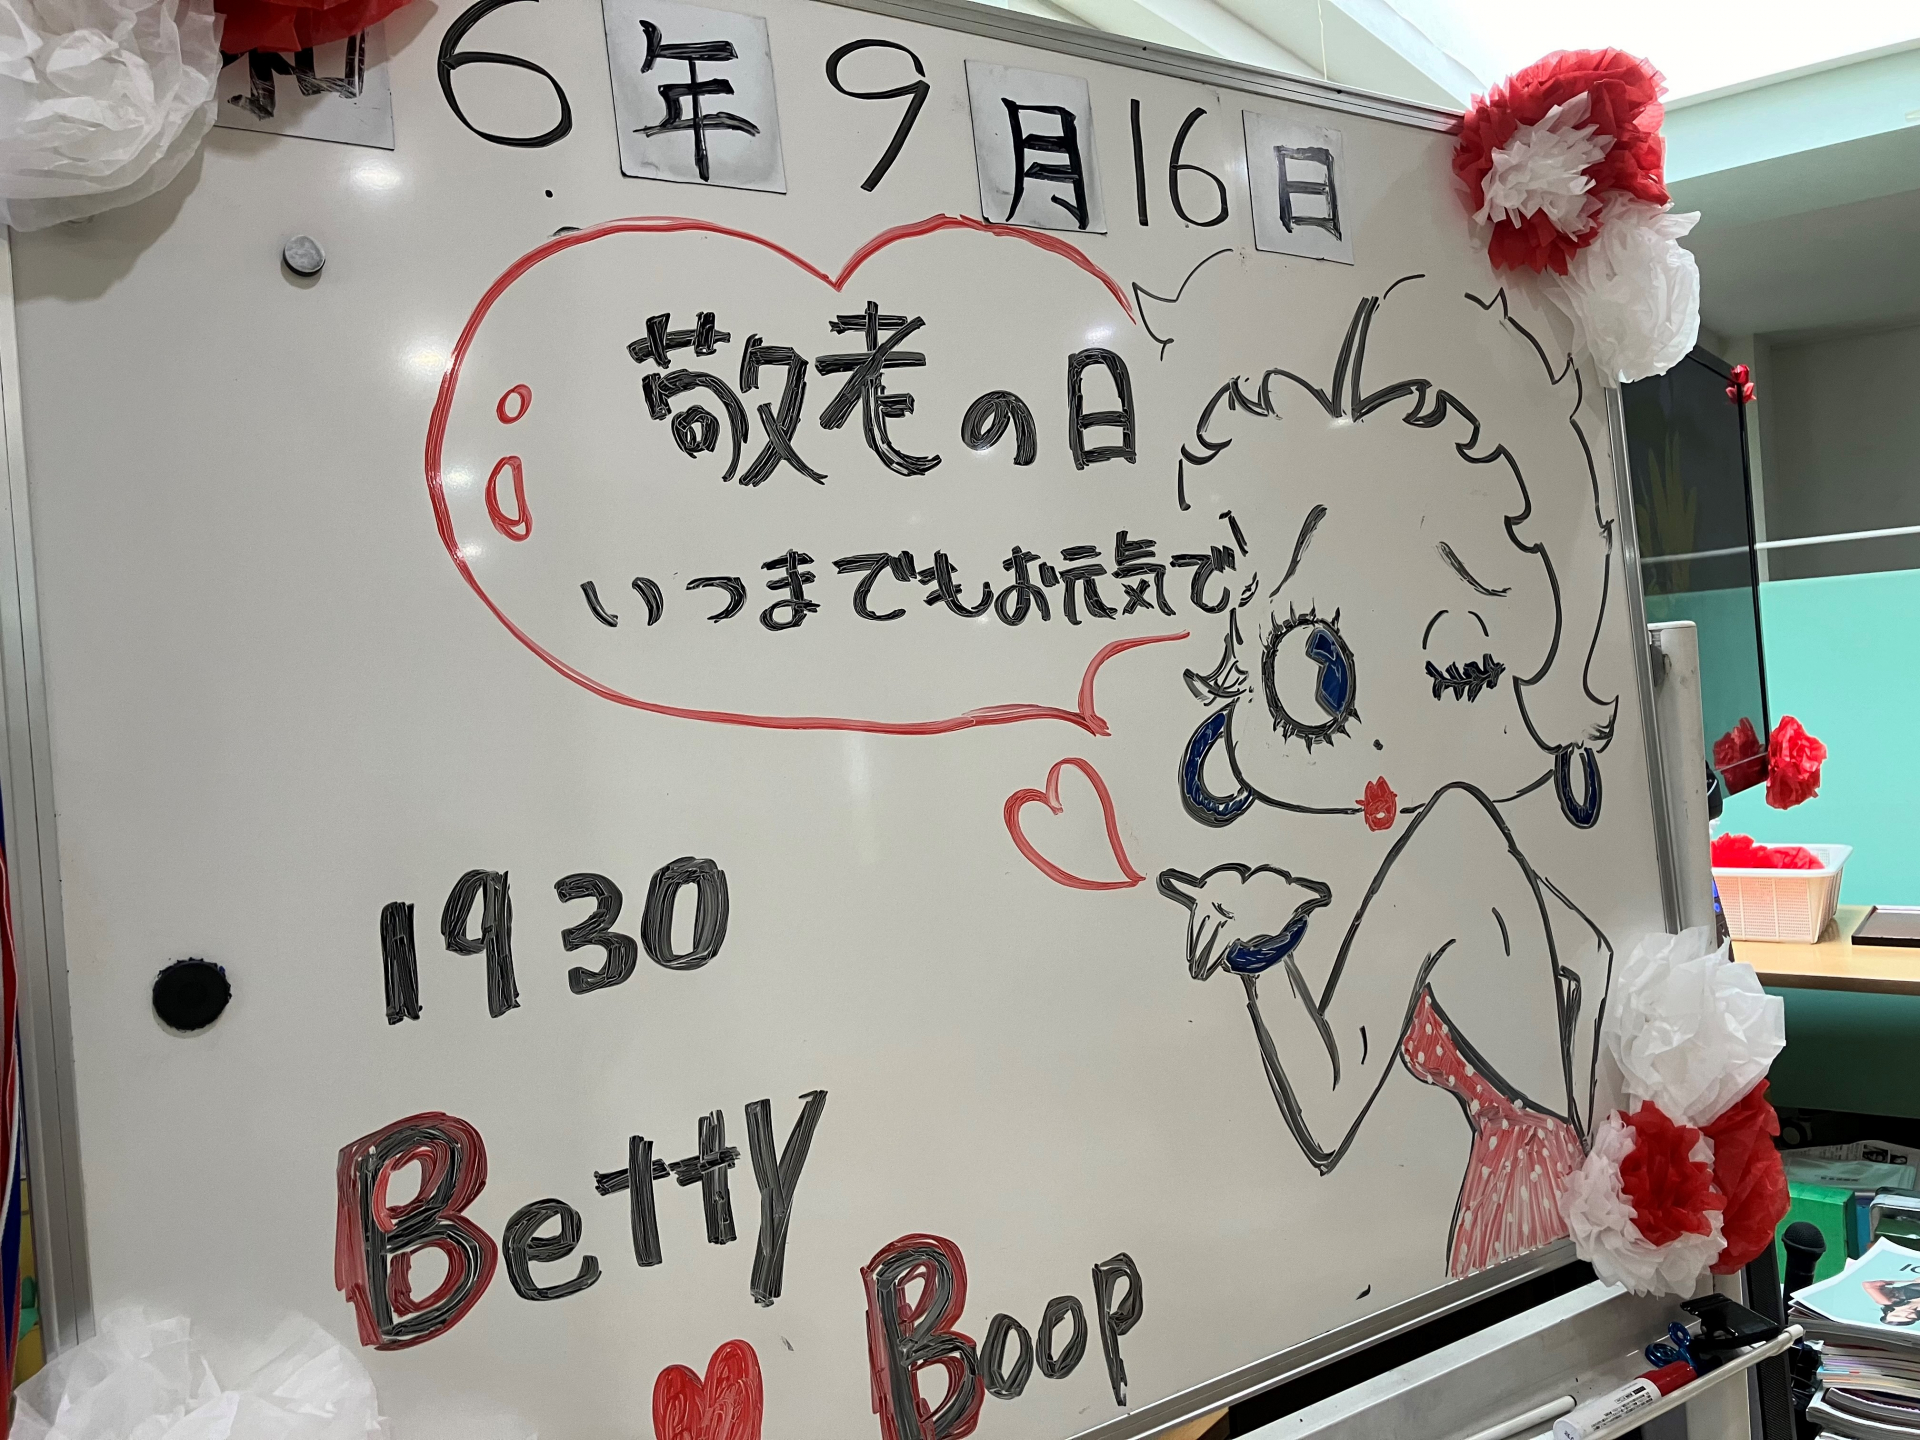 和 6年 9月 16日
敬老の日
いつまでもお元気で
1930
Betty
Boop